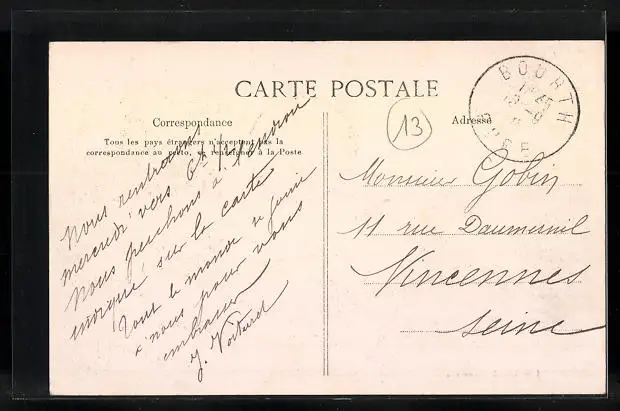 CARTE POSTALE
Correspondance
Tous les pays étrangers n'acceptent pas la
correspondance au recto, se renseigner à la Poste
Nous rentrerons
mercredi vers 6h 1/2
Nous penchons à l'endroit
indiqué sur la carte
Tout le monde se joint
à nous pour vous
embrasser
J. Voiturel
13
Adresse
BOURTH
EURE
Monsieur Gobin
11 rue Daumesnil
Vincennes
Seine